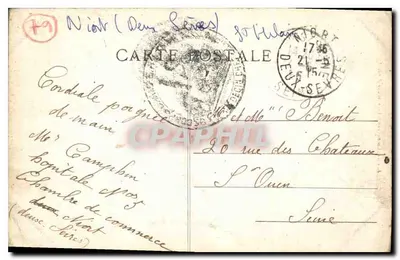 79
Niort (Deux Sèvres) St Hilaire
CARTE POSTALE
NIORT
DEUX-SEVRES
Cordiale poignée
de main
Mr Camphin
hopitale No 03
Chambre de commerce
Niort
(deuse Sevres)
Mr et Mme Benoit
20 rue des Chateaux
St Ouen
Seine
CPAPHIL